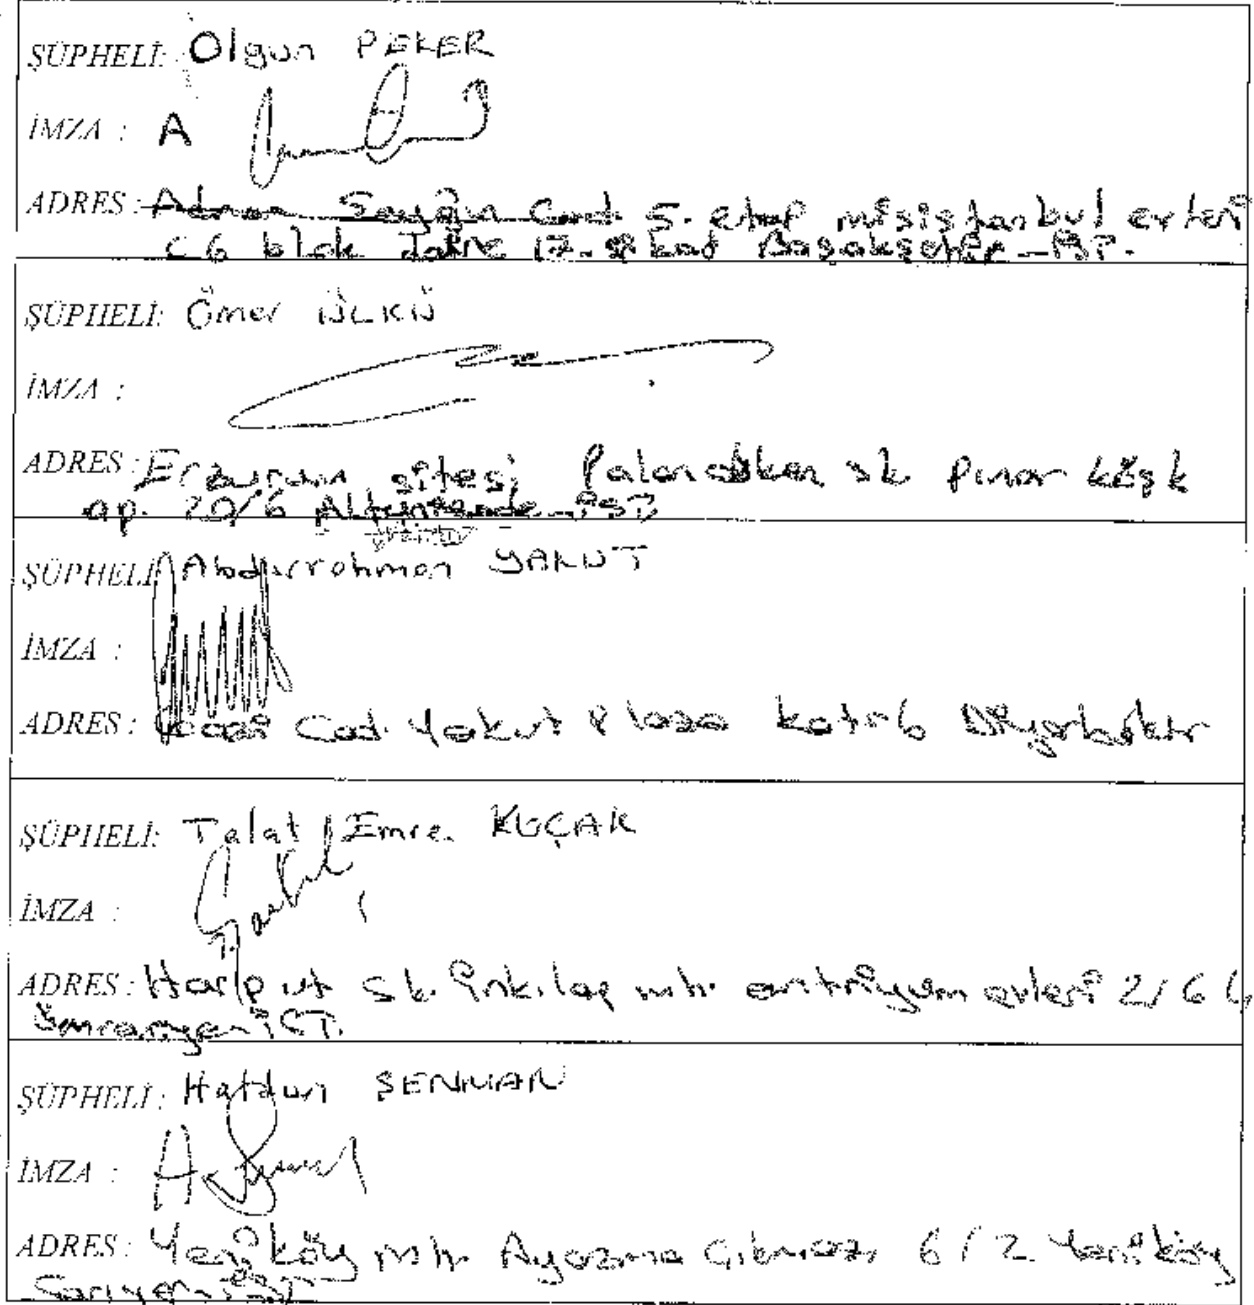 ŞÜPHELİ: Olgun PEKER
İMZA : A
ADRES : Adnan Saygün Cad. 5. etap misistanbul evleri
C6 blok Daire 17. kat Başakşehir - İST.
ŞÜPHELİ: Ömer ÜLKÜ
İMZA :
ADRES : Erzurum sitesi Palandöken sk Pınar köşk
ap. 20/6 Altunizade - İST
ŞÜPHELİ: Abdurrahman YAKUT
İMZA :
ADRES : Cad. Yakut Plaza kat:6 Diyarbakır
ŞÜPHELİ: Talat Emre KOÇAK
İMZA :
ADRES : Harput sk. İnkılap mh. antriyum evleri 2/6
Ümraniye - İST.
ŞÜPHELİ: Haldun ŞENMAN
İMZA :
ADRES : Yeniköy mh. Ayazma Çıkmazı 6/2 Yeniköy
Sarıyer - İST